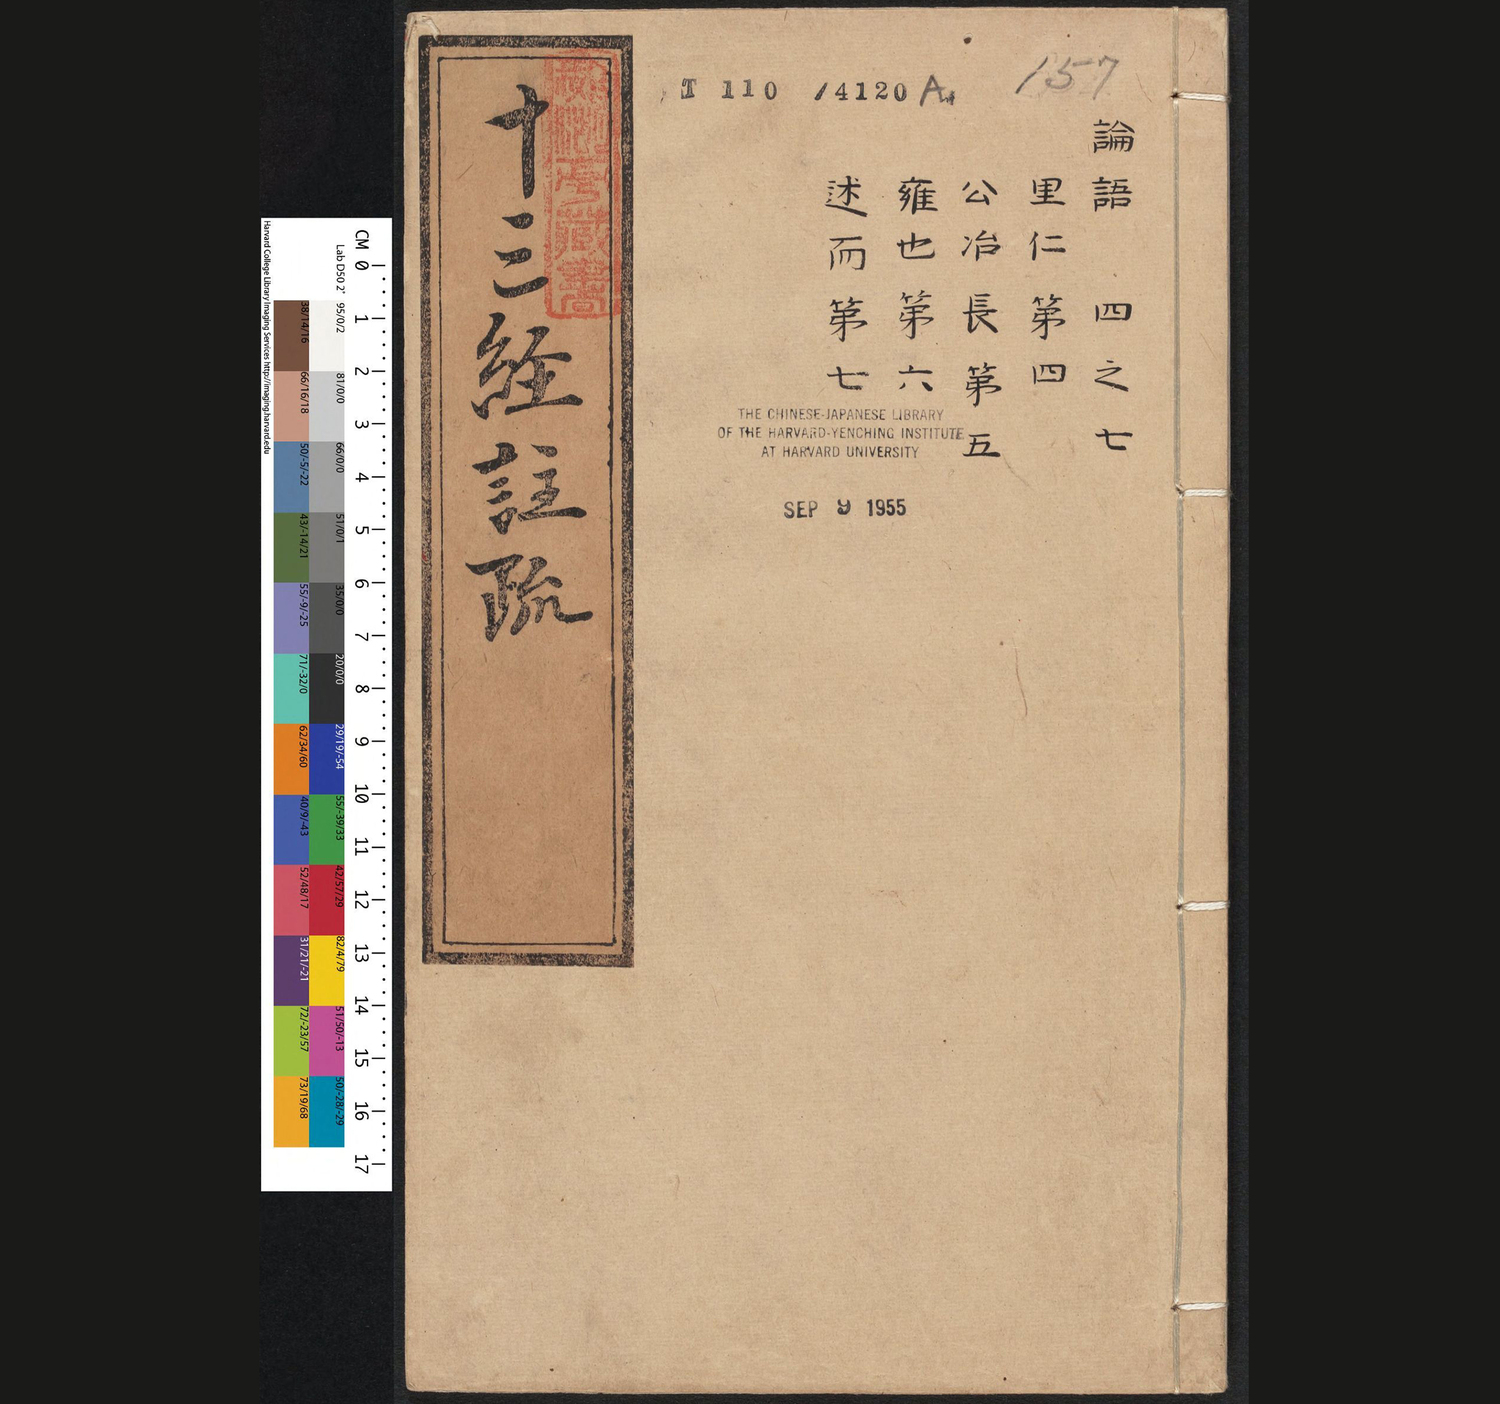 T 110 /4120 A
157
論語 四之七
里仁第四
公冶長第五
雍也第六
述而第七
十三経註疏
THE CHINESE-JAPANESE LIBRARY
OF THE HARVARD-YENCHING INSTITUTE
AT HARVARD UNIVERSITY
SEP 9 1955
CM 0 1 2 3 4 5 6 7 8 9 10 11 12 13 14 15 16 17
Lab D50 2° 95/0/2 81/0/0 66/0/0 51/0/1 35/0/0 20/0/0 29/19/-54 55/-39/33 42/57/29 82/4/79 51/50/-13 50/-28/-29
38/14/16 66/16/18 50/-5/-22 43/-14/21 55/-9/-25 71/-32/0 62/34/60 40/9/-43 52/48/17 31/21/-21 72/-23/57 73/19/68
Harvard College Library Imaging Services http://imaging.harvard.edu